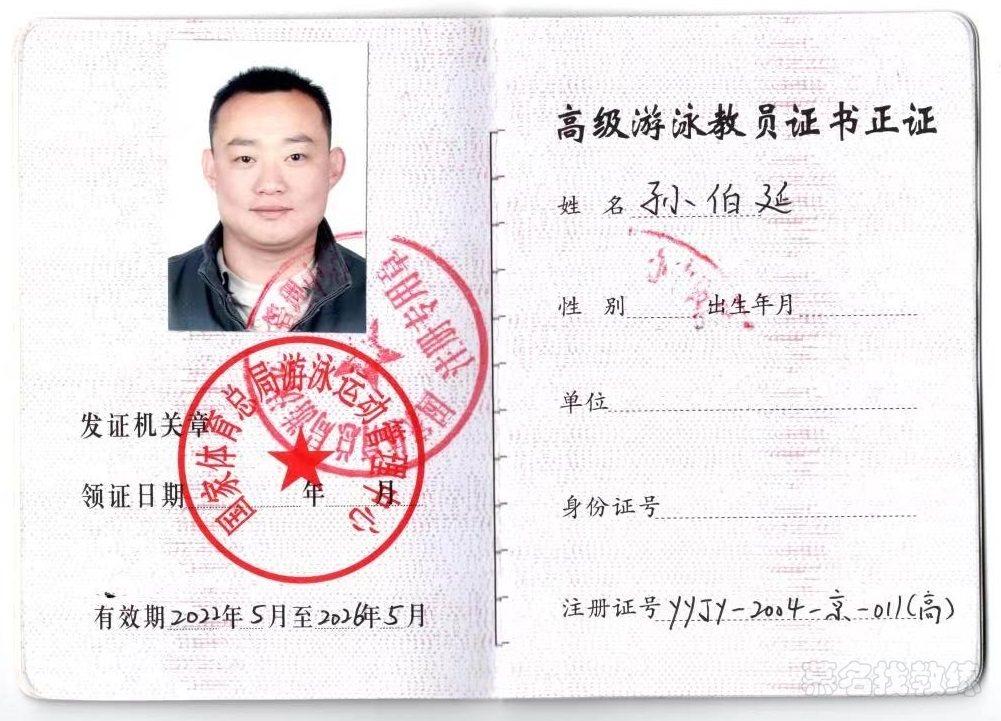 发证机关章
领证日期 年 月
有效期2022年5月至2026年5月
国家体育总局游泳运动管理中心
注册专用章
高级游泳教员证书正证
姓 名 孙伯延
性 别 出生年月
单位
身份证号
注册证号 YYJY-2004-京-011(高)
某名找教练